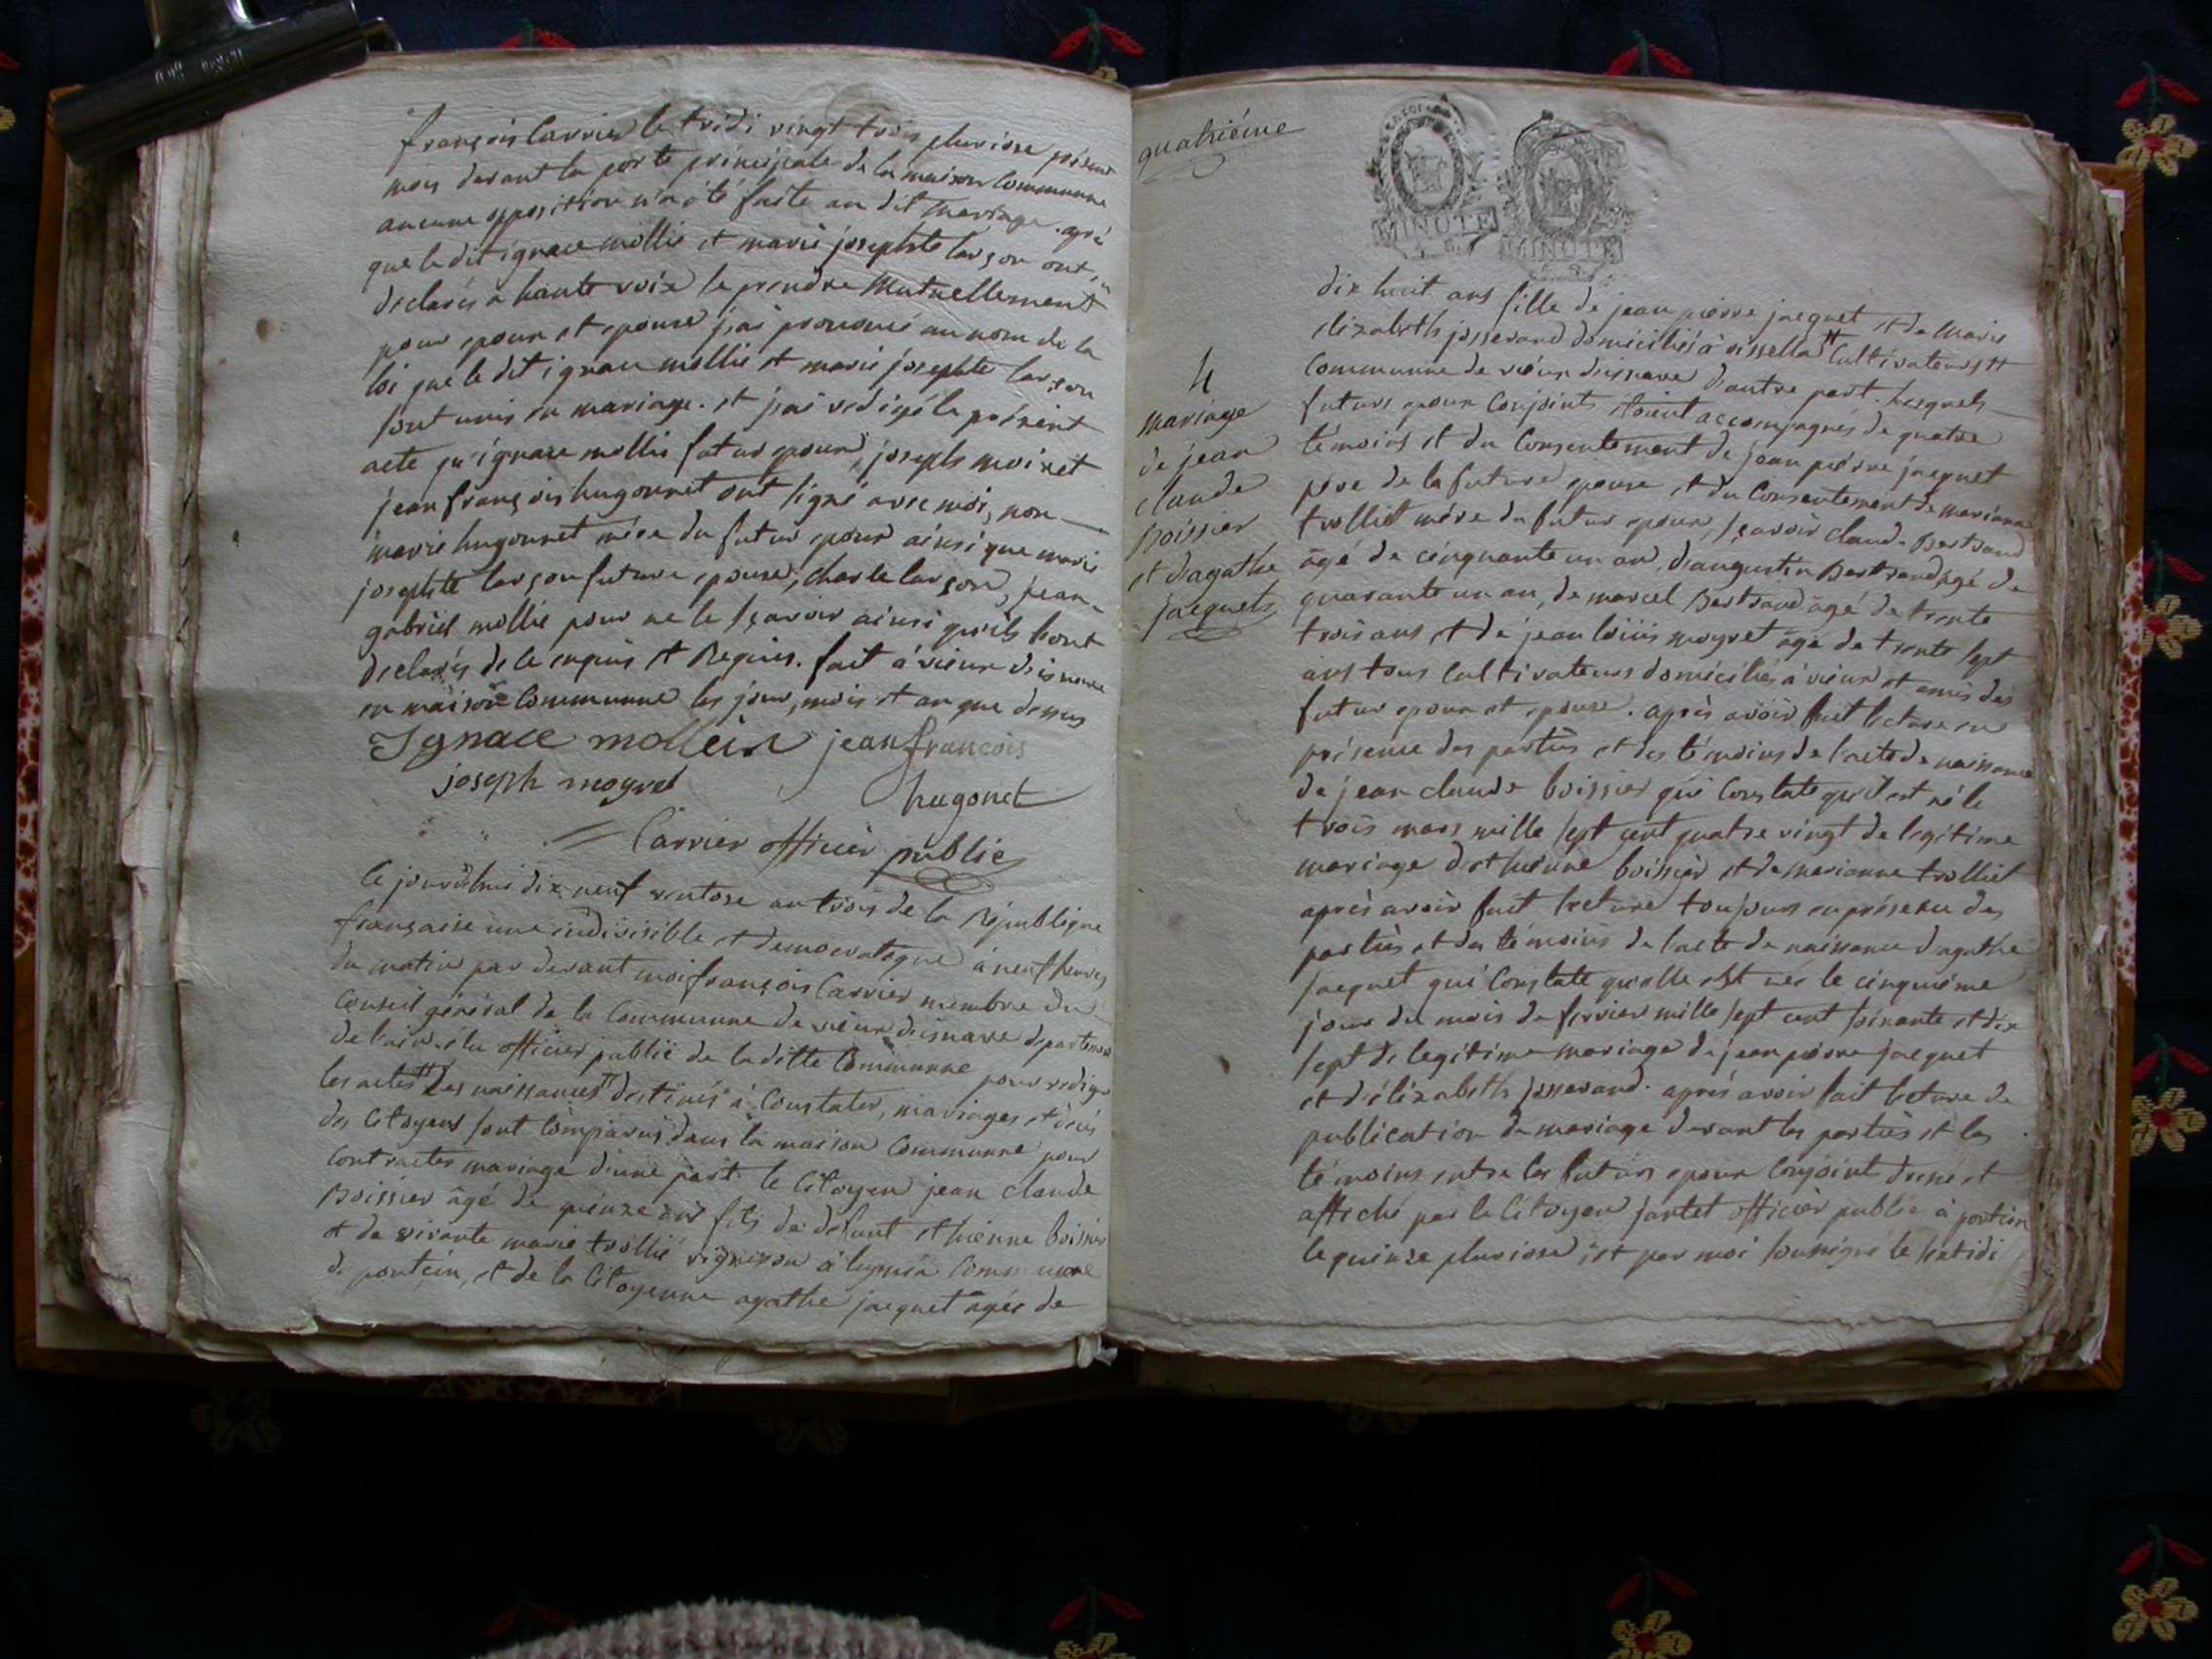 françois Carrier le tridi vingt trois pluviose présent
mois devant la porte principale de la maison Commune
aucune opposition n'a été faite au dit mariage. après
que le dit ignace mollie et marie josephte larçon ont
declarés a haute voix se prendre Mutuellement
pour epoux et epouse j'ai prononcé au nom de la
loi que le dit ignace mollie et marie josephte larçon
sont unis en mariage. et j'ai redigé le présent
acte qu'ignace mollie futur epoux, joseph moiret
jean françois hugonnet ont signé avec moi, non
marie hugonnet mére du futur epoux ainsi que marie
josephte larçon future epouse, charle larçon, jean
gabriel mollie pour ne le sçavoir ainsi qu'ils l'ont
declarés de le enquis et Requis. fait à vieux disnave
en maison Commune les jour, mois et an que dessus
Ignace mollein jean francois
joseph moyret
hugonet
Carrier officier public
Ce jourd'hui dix neuf ventose an trois de la République
française une indivisible et democratique à neuf heures
du matin par devant moi françois Carrier membre du
Conseil général de la Commune de vieux disnave departement
de l'ain elu officier public de la ditte Commune pour rediger
les actes des naissances destinés à Constater, mariages et décés
des Citoyens sont Comparus dans la maison Commune pour
Contracter mariage d'une part le Citoyen jean claude
Boissier âgé de quinze ans fils de défunt ethienne boissier
et de vivante marie trollié vigneron à Commune
de pontcin, et de la Citoyenne agathe jacquet âgée de
quatriéme
MINUTE
MINUTE
4
mariage
de jean
claude
Boissier
et d'agathe
jacquet
dix huit ans fille de jean pierre jacquet et de marie
elizabeth josserand domiciliés à Cultivateurs
Commune de vieux disnave d'autre part. lesquels
futurs epoux Conjoints etoient accompagnés de quatre
témoins et du Consentement de jean pierre jacquet
pére de la future epouse et du Consentement de marianne
trolliet mére du futur epoux, sçavoir claude Bertrand
âgé de cinquante un an, d'augustin Bertrand âgé de
quarante un an, de marcel Bertrand âgé de trente
trois ans et de jean loüis moyret âgé de trente sept
ans tous Cultivateurs domiciliés à vieux et amis des
futur epoux et epouse. après avoir fait lecture en
présence des parties et des témoins de l'acte de naissance
de jean claude boissier qui Constate qu'il est né le
trois mars mille sept cent quatre vingt de legitime
mariage d'ethienne boissier et de marianne trolliet
après avoir fait lecture toujours en présence des
parties et des témoins de l'acte de naissance d'agathe
jacquet qui Constate quelle est nee le cinquiéme
jour du mois de fevrier mille sept cent soixante et dix
sept de legitime mariage de jean pierre jacquet
et d'élizabeth josserand. après avoir fait lecture de
publication de mariage devant les parties et les
témoins entre les futurs epoux Conjoint et
affiché par le Citoyen officier public à pontcin
le quinze pluviose et par moi soussigné le